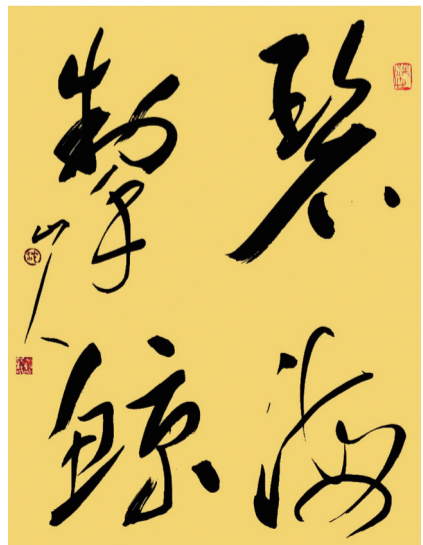 碧海
掣鲸
山人